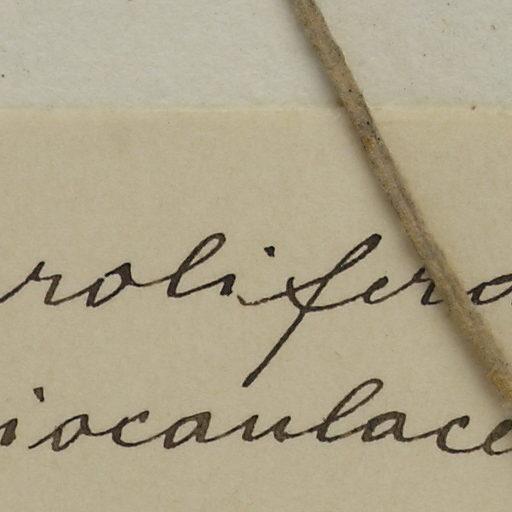 rolifera
iocaulace